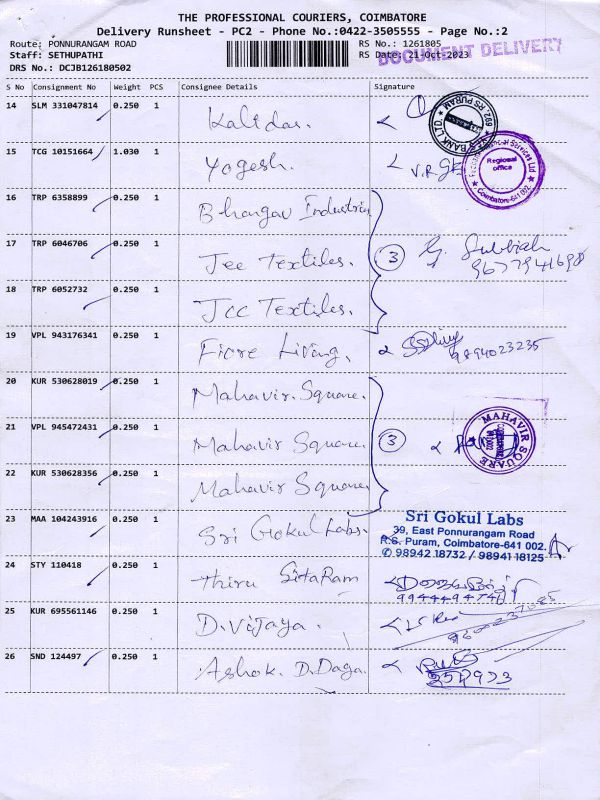 THE PROFESSIONAL COURIERS, COIMBATORE
Delivery Runsheet - PC2 - Phone No.:0422-3505555 - Page No.:2
Route: PONNURANGAM ROAD RS No.: 1261805
Staff: SETHUPATHI RS Date: 21-Oct-2023
DOCUMENT DELIVERY
DRS No.: DCJB126180502
S No Consignment No Weight PCS Consignee Details Signature
14 SLM 331047814 0.250 1 Kalidas.
692, RS PURAM
15 TCG 10151664 1.030 1 Yogesh. V.R
Financial Services Ltd
Regional office
Coimbatore-641 002.
16 TRP 6358899 0.250 1 Bhargav Industries
17 TRP 6046706 0.250 1 Jee Textiles. 3 G. Subbiah
9677941698
18 TRP 6052732 0.250 1 JCC Textiles.
19 VPL 943176341 0.250 1 Fiore Living. 9894023235
20 KUR 530628019 0.250 1 Mahavir. Square.
21 VPL 945472431 0.250 1 Mahavir Square. 3
MAHAVIR SQUARE
22 KUR 530628356 0.250 1 Mahavir Square.
23 MAA 104243916 0.250 1 Sri Gokul Labs.
Sri Gokul Labs
39, East Ponnurangam Road
R.S. Puram, Coimbatore-641 002.
✆ 98942 18732 / 98941 18125
24 STY 110418 0.250 1 Thiru SitaRam
25 KUR 695561146 0.250 1 D. Vijaya.
26 SND 124497 0.250 1 Ashok. D. Daga.